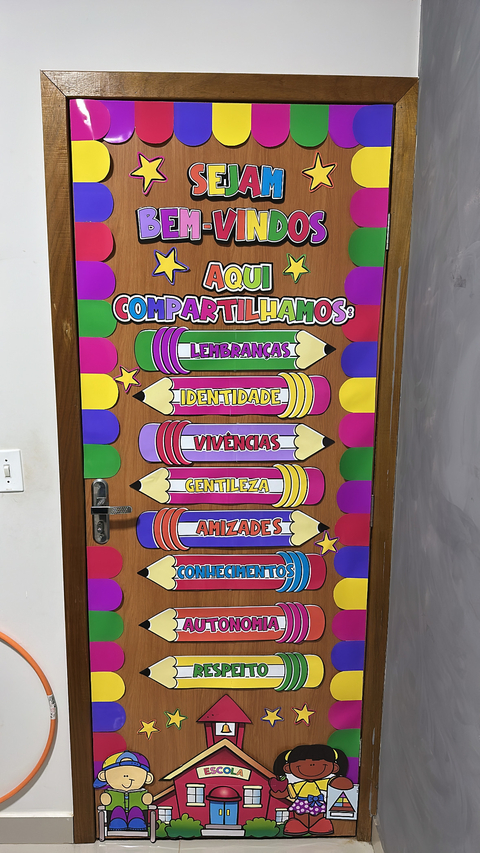 SEJAM
BEM-VINDOS
AQUI
COMPARTILHAMOS:
LEMBRANÇAS
IDENTIDADE
VIVÊNCIAS
GENTILEZA
AMIZADES
CONHECIMENTOS
AUTONOMIA
RESPEITO
ESCOLA